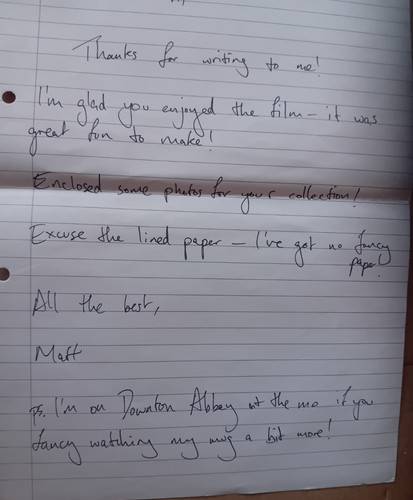 Thanks for writing to me!
I'm glad you enjoyed the film - it was
great fun to make!
Enclosed some photos for your collection!
Excuse the lined paper - I've got no fancy
paper!
All the best,
Matt
PS. I'm on Downton Abbey at the mo if you
fancy watching my mug a bit more!